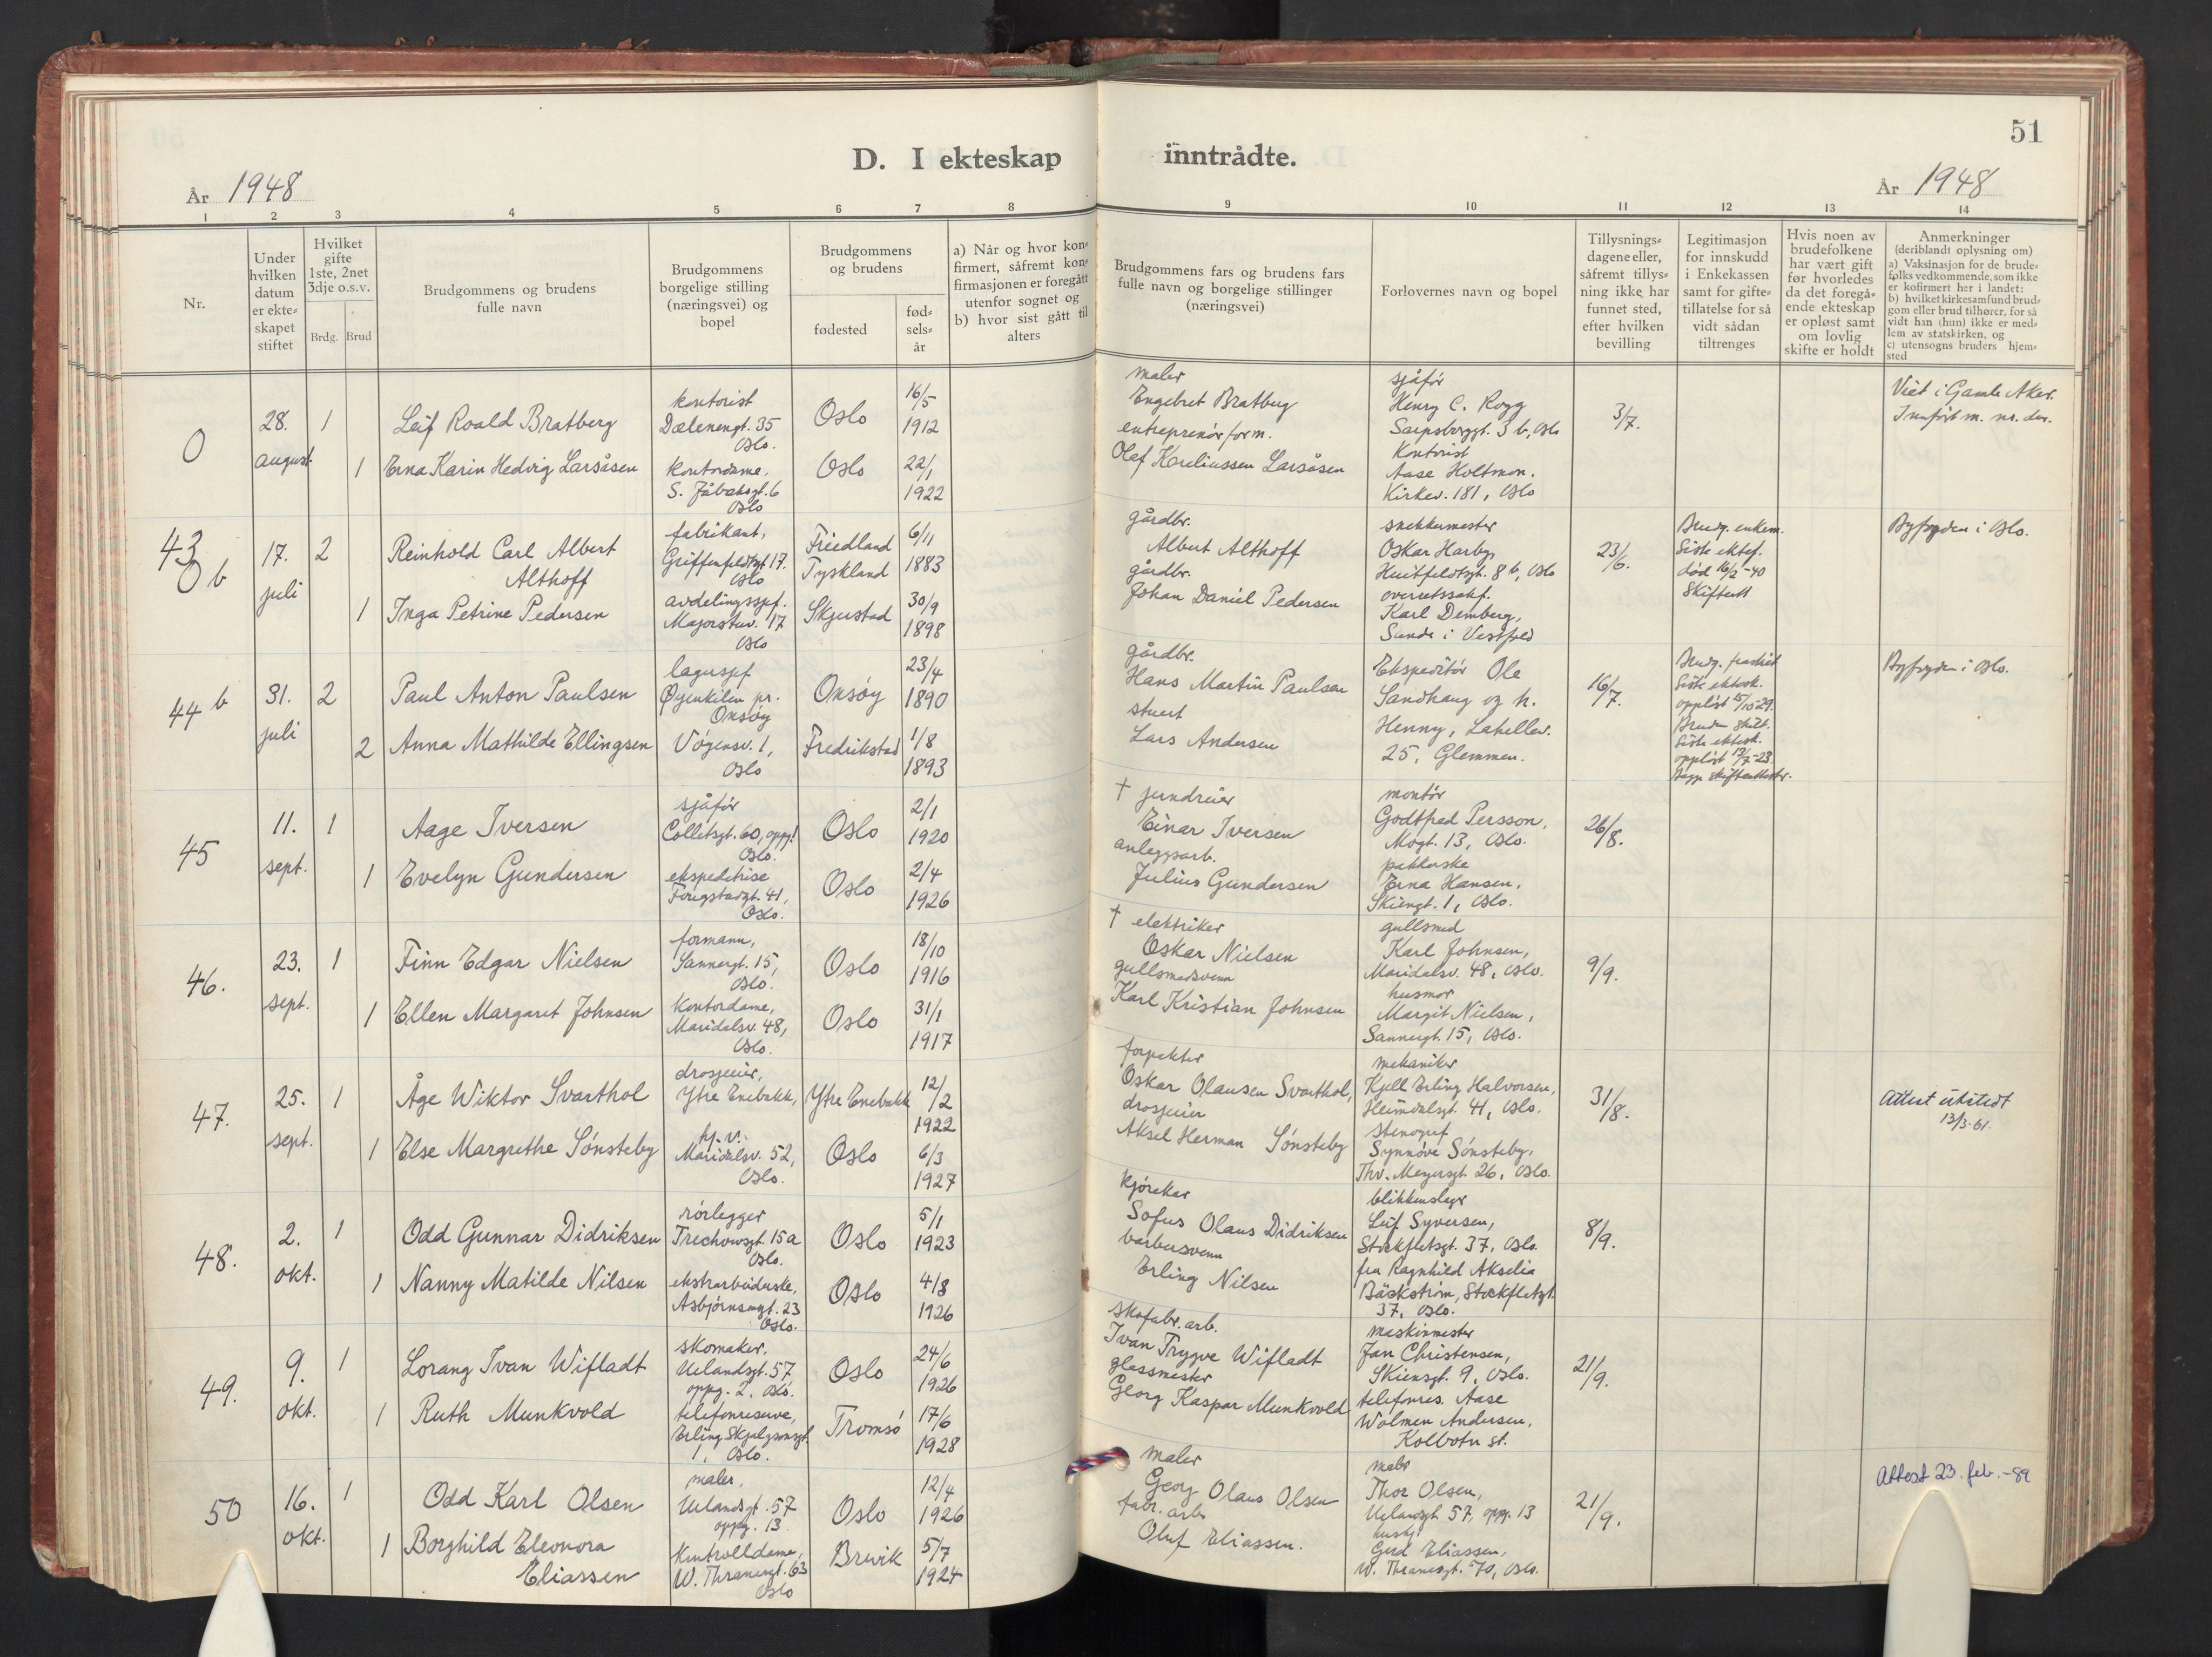 51
D. I ekteskap inntrådte.
År 1948
År 1948
1 2 3 4 5 6 7 8 9 10 11 12 13 14
Nr.
Under hvilken datum er ekte-skapet stiftet
Hvilket gifte 1ste, 2net 3dje o.s.v.
Brdg. Brud
Brudgommens og brudens fulle navn
Brudgommens borgelige stilling (næringsvei) og bopel
Brudgommens og brudens
fødested
fød-sels-år
a) Når og hvor kon-firmert, såfremt kon-firmasjonen er foregått utenfor sognet og
b) hvor sist gått til alters
Brudgommens fars og brudens fars fulle navn og borgelige stillinger (næringsvei)
Forlovernes navn og bopel
Tillysnings-dagene eller, såfremt tillys-ning ikke har funnet sted, efter hvilken bevilling
Legitimasjon for innskudd i Enkekassen samt for gifte-tillatelse for så vidt sådan tiltrenges
Hvis noen av brudefolkene har vært gift før hvorledes da det foregå-ende ekteskap er opløst samt om lovlig skifte er holdt
Anmerkninger (deriblandt oplysning om)
a) Vaksinasjon for de brude-folks vedkommende, som ikke er kofirmert her i landet:
b) hvilket kirkesamfund brud-gom eller brud tilhører, for så vidt han (hun) ikke er med-lem av statskirken, og
c) utensogns bruders hjem-sted
0
28. august
1
Leif Roald Bratberg
kontorist
Dælenengt. 35
Oslo.
Oslo
16/5 1912
maler
Engebret Bratberg
sjåfør
Henry C. Rogg
Sarpsborggt. 3 b, Oslo
3/7.
Viet i Gamle Aker.
Innført m. nr. der.
1
Erna Karin Hedvig Larsåsen
kontordame.
S. Jåbæksgt. 6
Oslo
Oslo
22/1 1922
entreprenørform.
Olaf Koreliussen Larsåsen
Kontorist
Aase Holtmon.
Kirkev. 181, Oslo
43
0 b
17. juli
2
Reinhold Carl Albert
Althoff
fabrikant,
Griffenfeldtsgt 17.
Oslo
Friedland
Tyskland
6/11 1883
gårdbr.
Albert Althoff
snekkermester
Oskar Harby,
Huitfeldtsgt. 8 b, Oslo
23/6.
Brudg. enkem.
Siste ektef.
død 16/2-40
Skifteatt
Byfogden i Oslo.
1
Inga Petrine Pedersen
avdelingssjef.
Majorstuv. 17
Oslo
Skjerstad
30/9 1898
gårdbr.
Johan Daniel Pedersen
overrettssakf.
Karl Demberg,
Sande i Vestfold
44 b
31. juli
2
Paul Anton Paulsen
lagersjef
Øyenkilen pr.
Onsøy
Onsøy
23/4 1890
gårdbr.
Hans Martin Paulsen
Ekspeditør Ole
Sandhaug og h.
Henny, Lahellev.
25, Glemmen.
16/7.
Brudg. fraskilt
Siste ektesk.
oppløst 15/10-29.
Bruden skilt.
Siste ektesk.
oppløst 13/7-23.
Begge skifteattester.
Byfogden i Oslo.
2
Anna Mathilde Ellingsen
Vøyensv. 1,
Oslo
Fredrikstad
1/8 1893
stuert
Lars Andersen
45
11. sept.
1
Aage Iversen
sjåfør
Colletsgt. 60, oppg. 1
Oslo.
Oslo
2/1 1920
† jerndreier
Einar Iversen
montør
Godtfred Persson,
Mogt. 13, Oslo.
26/8.
1
Evelyn Gundersen
ekspeditrise
Fougstadgt. 41,
Oslo.
Oslo
2/4 1926
anleggsarb.
Julius Gundersen
pakkerske
Erna Hansen.
Skiensgt. 1, Oslo.
46.
23. sept.
1
Finn Edgar Nielsen
formann,
Sannergt. 15,
Oslo.
Oslo
18/10 1916
† elektriker
Oskar Nielsen
gullsmed
Karl Johnsen,
Maridalsv. 48, Oslo.
9/9.
1
Ellen Margaret Johnsen
kontordame,
Maridalsv. 48,
Oslo.
Oslo
31/1 1917
gullsmedsvenn
Karl Kristian Johnsen
husmor
Margit Nielsen,
Sannergt. 15, Oslo.
47.
25. sept.
1
Åge Wiktor Svarthol
drosjeeier,
Ytre Enebakk,
Ytre Enebakk
12/2 1922
forpakter
Oskar Olausen Svarthol,
mekaniker
Kjell Erling Halvorsen,
Heimdalsgt. 41, Oslo.
31/8.
Attest utstedt
13/3-61.
1
Else Margrethe Sønsteby
hj.v.
Maridalsv. 52,
Oslo.
Oslo
6/3 1927
drosjeeier
Aksel Herman Sønsteby
stenograf
Synnøve Sønsteby,
Thv. Meyersgt. 26, Oslo.
48.
2. okt.
1
Odd Gunnar Didriksen
rørlegger
Trechowsgt. 15a
Oslo.
Oslo
5/1 1923
kjørekar
Sofus Olaus Didriksen
blikkenslager
Leif Syversen,
Stockfletsgt. 37, Oslo.
8/9.
1
Nanny Matilde Nilsen
ekstraarbeiderske,
Asbjørnsensgt. 23
Oslo.
Oslo
4/8 1926
barbersvenn
Erling Nilsen
fru Ragnhild Akselia
Bäckström, Stockfletsgt.
37, Oslo.
49.
9. okt.
1
Lorang Ivan Wifladt
skomaker.
Uelandsgt. 57
oppg. 2, Oslo.
Oslo
24/6 1926
skofabr. arb.
Ivan Trygve Wifladt
maskinmester
Jan Christensen,
Skiensgt. 9, Oslo.
21/9.
1
Ruth Munkvold
telefonreserve,
Erling Skjalgsonsgt.
1, Oslo.
Tromsø
17/6 1928
glassmester
Georg Kaspar Munkvold
telefonres. Aase
Wolmen Andersen,
Kolbotn st.
50
16. okt.
1
Odd Karl Olsen
maler,
Uelandsgt. 57
oppg. 13
Oslo
12/4 1926
maler
Georg Olaus Olsen
maler
Thor Olsen,
Uelandsgt 57, oppg. 13
21/9.
Attest 23. feb. -89
1
Borghild Eleonora
Eliassen
Kontrolldame,
W. Thranesgt. 63
Oslo
Brevik
5/7 1924
fabr. arb.
Oluf Eliassen.
Gerd Eliassen,
W. Thranesgt. 70, Oslo.